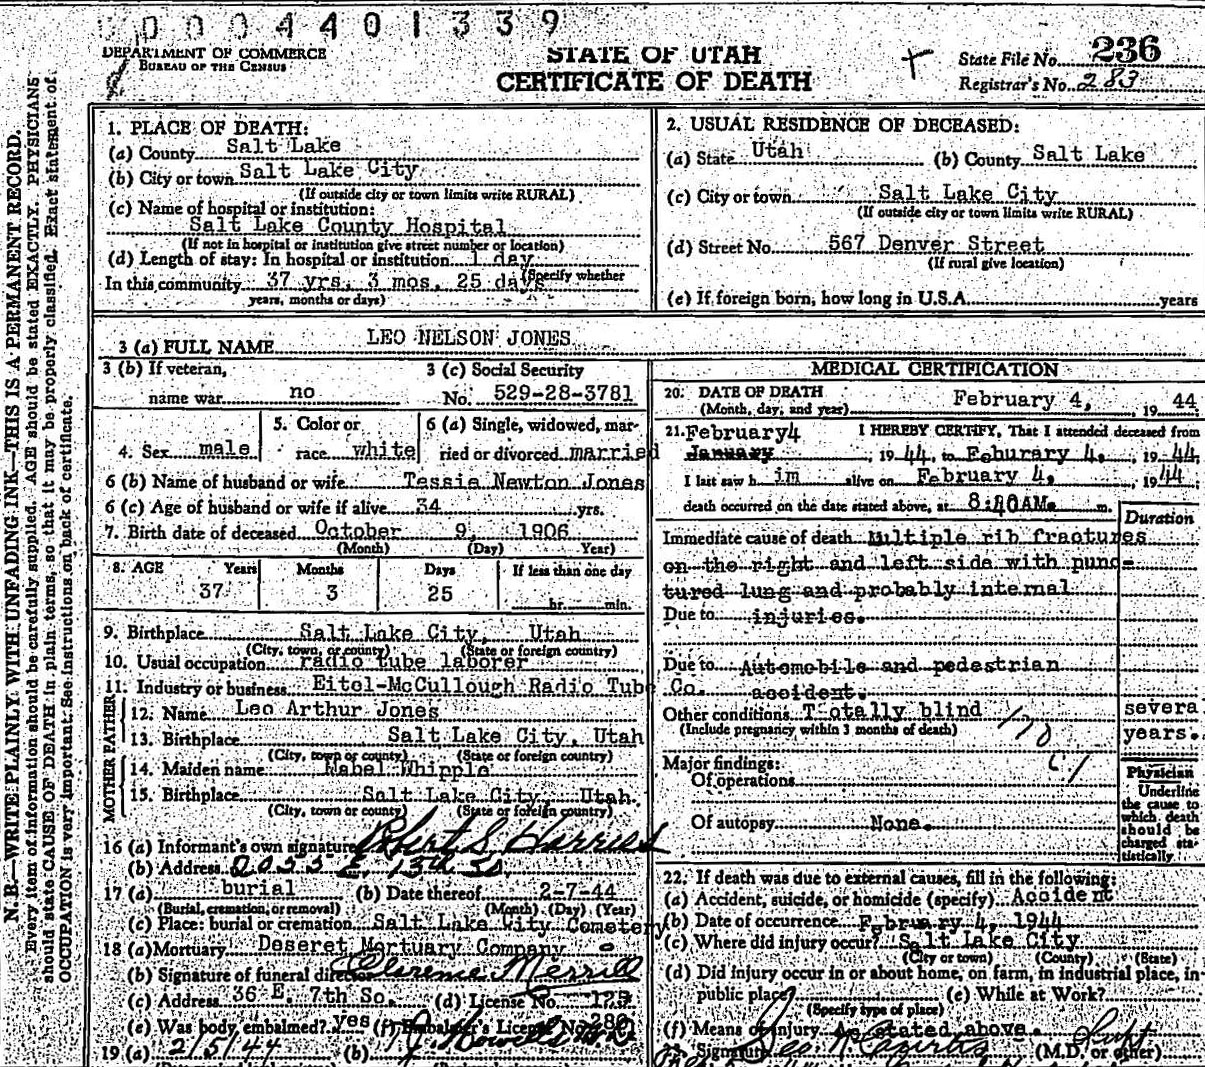 0004401339
DEPARTMENT OF COMMERCE
BUREAU OF THE CENSUS
STATE OF UTAH
CERTIFICATE OF DEATH
State File No. 236
Registrar's No. 283
N. B.—WRITE PLAINLY, WITH UNFADING INK—THIS IS A PERMANENT RECORD.
Every item of information should be carefully supplied. AGE should be stated EXACTLY. PHYSICIANS
should state CAUSE OF DEATH in plain terms, so that it may be properly classified. Exact statement of
OCCUPATION is very important. See instructions on back of certificate.
1. PLACE OF DEATH:
(a) County Salt Lake
(b) City or town Salt Lake City
(If outside city or town limits write RURAL)
(c) Name of hospital or institution:
Salt Lake County Hospital
(If not in hospital or institution give street number or location)
(d) Length of stay: In hospital or institution 1 day
(Specify whether
In this community 37 yrs, 3 mos, 25 days
years, months or days)
2. USUAL RESIDENCE OF DECEASED:
(a) State Utah (b) County Salt Lake
(c) City or town Salt Lake City
(If outside city or town limits write RURAL)
(d) Street No. 567 Denver Street
(If rural give location)
(e) If foreign born, how long in U.S.A. years
3 (a) FULL NAME LEO NELSON JONES
3 (b) If veteran,
name war no
3 (c) Social Security
No. 529-28-3781
4. Sex male
5. Color or
race white
6 (a) Single, widowed, mar-
ried or divorced married
6 (b) Name of husband or wife Tessie Newton Jones
6 (c) Age of husband or wife if alive 34 yrs.
7. Birth date of deceased October 9, 1906
(Month) (Day) Year)
8. AGE Years Months Days If less than one day
37 3 25 hr. min.
9. Birthplace Salt Lake City, Utah
(City, town, or county) (State or foreign country)
10. Usual occupation radio tube laborer
11. Industry or business Eitel-McCullough Radio Tube Co.
FATHER
12. Name Leo Arthur Jones
13. Birthplace Salt Lake City, Utah
(City, town or county) (State or foreign country)
MOTHER
14. Maiden name Mabel Whipple
15. Birthplace Salt Lake City, Utah
(City, town or county) (State or foreign country)
16 (a) Informant's own signature Robert S Harries
(b) Address 2055 E. 13th So.
17 (a) burial (b) Date thereof 2-7-44
(Burial, cremation, or removal) (Month) (Day) (Year)
(c) Place: burial or cremation Salt Lake City Cemetery
18 (a) Mortuary Deseret Mortuary Company
(b) Signature of funeral director Clarence Merrill
(c) Address 36 E. 7th So. (d) License No.
(e) Was body embalmed? yes (f) Embalmer's License No.
19 (a) 2/5/44 (b)
MEDICAL CERTIFICATION
20. DATE OF DEATH
(Month, day, and year) February 4, 1944
21. February4 I HEREBY CERTIFY, That I attended deceased from
January, 1944, to Feburary 4, 1944,
I last saw him alive on February 4, 1944
death occurred on the date stated above, at 8:40AM. m.
Duration
Immediate cause of death Multiple rib fractures
on the right and left side with punc-
tured lung and probably internal
Due to injuries.
Due to Automobile and pedestrian
accident.
Other conditions Totally blind severa
(Include pregnancy within 3 months of death) years.
170
Major findings:
Of operations
Of autopsy None.
Physician
Underline
the cause to
which death
should be
charged sta-
tistically.
22. If death was due to external causes, fill in the following:
(a) Accident, suicide, or homicide (specify) Accident
(b) Date of occurrence February 4, 1944
(c) Where did injury occur? Salt Lake City
(City or town) (County) (State)
(d) Did injury occur in or about home, on farm, in industrial place, in
public place? (e) While at Work?
(Specify type of place)
(f) Means of injury As stated above.
Signature (M.D. or other)